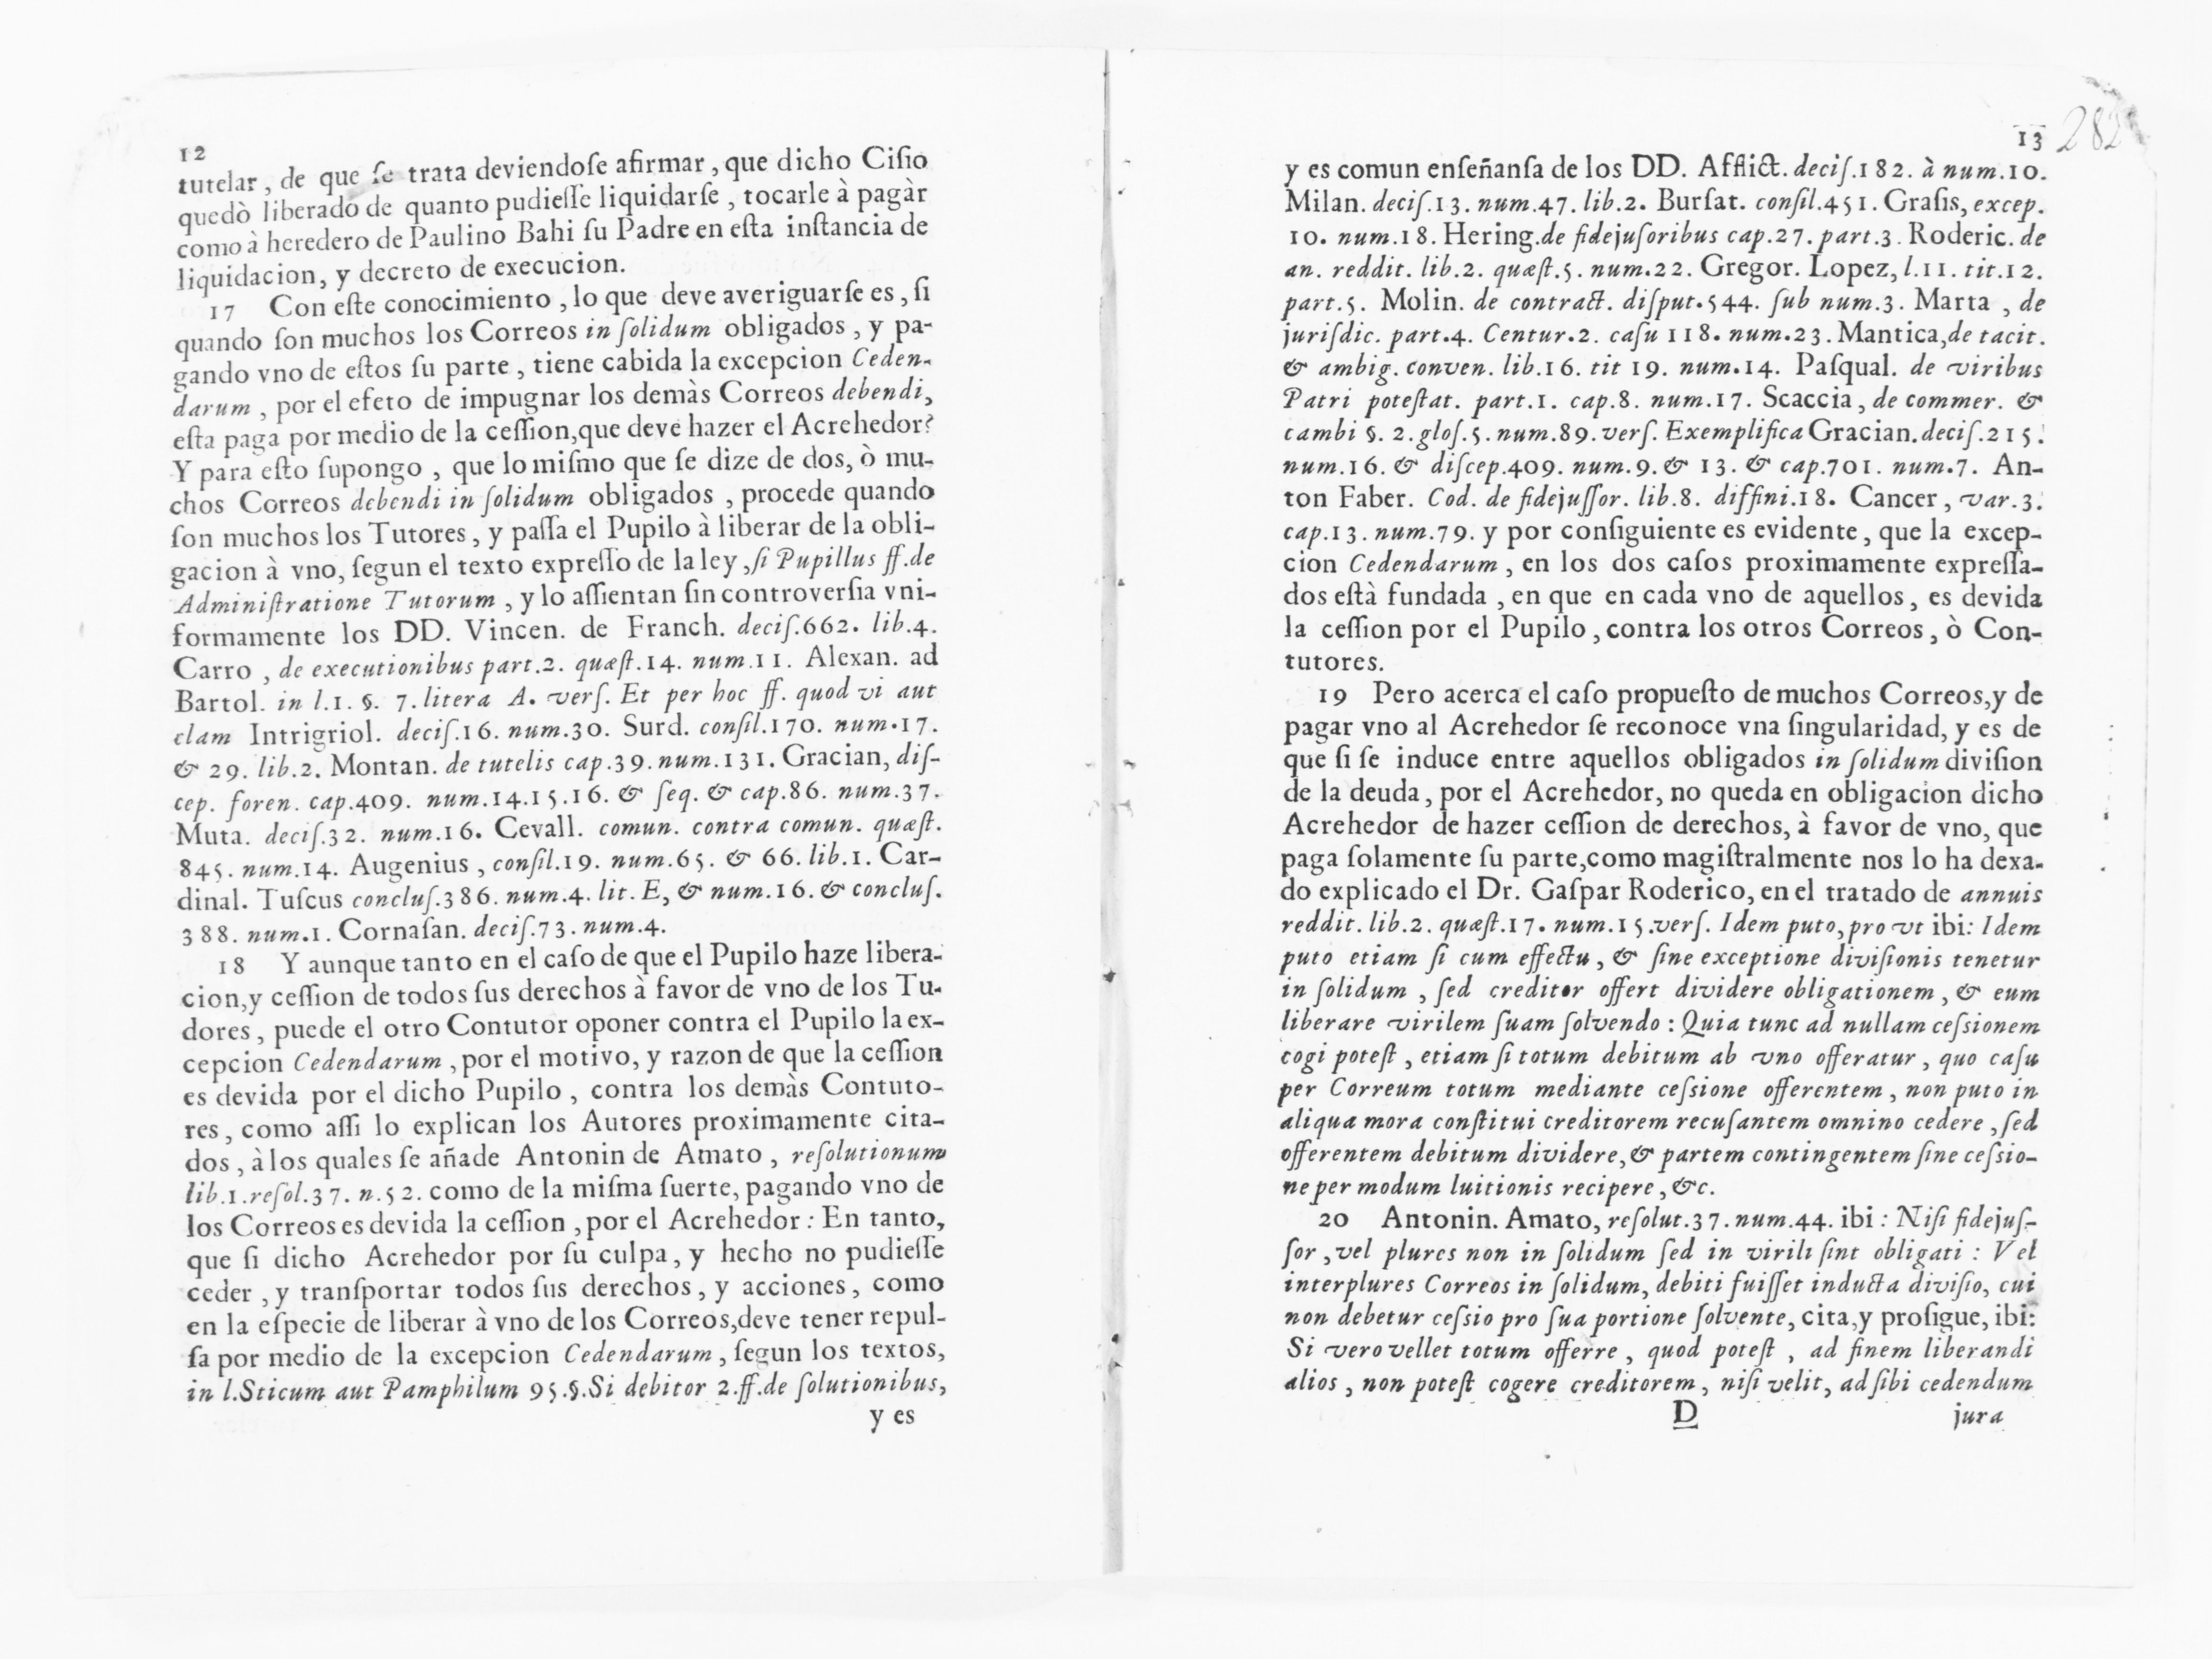 12
tutelar, de que ſe trata deviendoſe afirmar, que dicho Ciſio
quedò liberado de quanto pudieſſe liquidarſe, tocarle à pagàr
como à heredero de Paulino Bahi ſu Padre en eſta inſtancia de
liquidacion, y decreto de execucion.
17 Con eſte conocimiento, lo que deve averiguarſe es, ſi
quando ſon muchos los Correos in ſolidum obligados, y pa-
gando vno de eſtos ſu parte, tiene cabida la excepcion Ceden-
darum, por el efeto de impugnar los demàs Correos debendi,
eſta paga por medio de la ceſſion, que deve hazer el Acrehedor?
Y para eſto ſupongo, que lo miſmo que ſe dize de dos, ò mu-
chos Correos debendi in ſolidum obligados, procede quando
ſon muchos los Tutores, y paſſa el Pupilo à liberar de la obli-
gacion à vno, ſegun el texto expreſſo de la ley, ſi Pupillus ff. de
Adminiſtratione Tutorum, y lo aſſientan ſin controverſia vni-
formamente los DD. Vincen. de Franch. deciſ.662. lib.4.
Carro, de executionibus part.2. quæſt.14. num.11. Alexan. ad
Bartol. in l.1. §. 7. litera A. verſ. Et per hoc ff. quod vi aut
clam Intrigriol. deciſ.16. num.30. Surd. conſil.170. num.17.
& 29. lib.2. Montan. de tutelis cap.39. num.131. Gracian, diſ-
cep. foren. cap.409. num.14.15.16. & ſeq. & cap.86. num.37.
Muta. deciſ.32. num.16. Cevall. comun. contra comun. quæſt.
845. num.14. Augenius, conſil.19. num.65. & 66. lib.1. Car-
dinal. Tuſcus concluſ.386. num.4. lit. E, & num.16. & concluſ.
388. num.1. Cornaſan. deciſ.73. num.4.
18 Y aunque tanto en el caſo de que el Pupilo haze libera-
cion, y ceſſion de todos ſus derechos à favor de vno de los Tu-
dores, puede el otro Contutor oponer contra el Pupilo la ex-
cepcion Cedendarum, por el motivo, y razon de que la ceſſion
es devida por el dicho Pupilo, contra los demàs Contuto-
res, como aſſi lo explican los Autores proximamente cita-
dos, à los quales ſe añade Antonin de Amato, reſolutionum
lib.1. reſol.37. n.52. como de la miſma ſuerte, pagando vno de
los Correos es devida la ceſſion, por el Acrehedor: En tanto,
que ſi dicho Acrehedor por ſu culpa, y hecho no pudieſſe
ceder, y tranſportar todos ſus derechos, y acciones, como
en la eſpecie de liberar à vno de los Correos, deve tener repul-
ſa por medio de la excepcion Cedendarum, ſegun los textos,
in l.Sticum aut Pamphilum 95.§.Si debitor 2.ff.de ſolutionibus,
y es
13 282
y es comun enſeñanſa de los DD. Afflict. deciſ.182. à num.10.
Milan. deciſ.13. num.47. lib.2. Burſat. conſil.451. Graſis, excep.
10. num.18. Hering. de fidejuſoribus cap.27. part.3. Roderic. de
an. reddit. lib.2. quæſt.5. num.22. Gregor. Lopez, l.11. tit.12.
part.5. Molin. de contract. diſput.544. ſub num.3. Marta, de
juriſdic. part.4. Centur.2. caſu 118. num.23. Mantica, de tacit.
& ambig. conven. lib.16. tit 19. num.14. Paſqual. de viribus
Patri poteſtat. part.1. cap.8. num.17. Scaccia, de commer. &
cambi §. 2. gloſ.5. num.89. verſ. Exemplifica Gracian. deciſ.215.
num.16. & diſcep.409. num.9. & 13. & cap.701. num.7. An-
ton Faber. Cod. de fidejuſſor. lib.8. diffini.18. Cancer, var.3.
cap.13. num.79. y por conſiguiente es evidente, que la excep-
cion Cedendarum, en los dos caſos proximamente expreſſa-
dos eſtà fundada, en que en cada vno de aquellos, es devida
la ceſſion por el Pupilo, contra los otros Correos, ò Con-
tutores.
19 Pero acerca el caſo propueſto de muchos Correos, y de
pagar vno al Acrehedor ſe reconoce vna ſingularidad, y es de
que ſi ſe induce entre aquellos obligados in ſolidum diviſion
de la deuda, por el Acrehedor, no queda en obligacion dicho
Acrehedor de hazer ceſſion de derechos, à favor de vno, que
paga ſolamente ſu parte, como magiſtralmente nos lo ha dexa-
do explicado el Dr. Gaſpar Roderico, en el tratado de annuis
reddit. lib.2. quæſt.17. num.15. verſ. Idem puto, pro vt ibi: Idem
puto etiam ſi cum effectu, & ſine exceptione diviſionis tenetur
in ſolidum, ſed creditor offert dividere obligationem, & eum
liberare virilem ſuam ſolvendo: Quia tunc ad nullam ceſsionem
cogi poteſt, etiam ſi totum debitum ab vno offeratur, quo caſu
per Correum totum mediante ceſsione offerentem, non puto in
aliqua mora conſtitui creditorem recuſantem omnino cedere, ſed
offerentem debitum dividere, & partem contingentem ſine ceſsio-
ne per modum luitionis recipere, &c.
20 Antonin. Amato, reſolut.37. num.44. ibi: Niſi fidejuſ-
ſor, vel plures non in ſolidum ſed in virili ſint obligati: Vel
interplures Correos in ſolidum, debiti fuiſſet inducta diviſio, cui
non debetur ceſsio pro ſua portione ſolvente, cita, y proſigue, ibi:
Si vero vellet totum offerre, quod poteſt, ad finem liberandi
alios, non poteſt cogere creditorem, niſi velit, ad ſibi cedendum
D jura